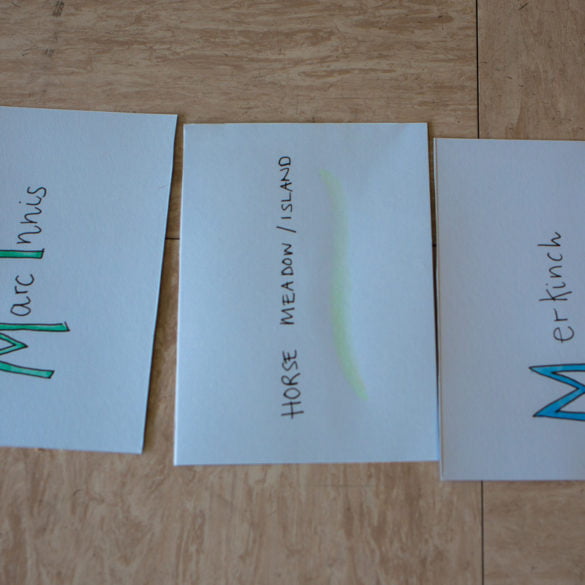 Marc Innis
HORSE MEADOW / ISLAND
Merkinch